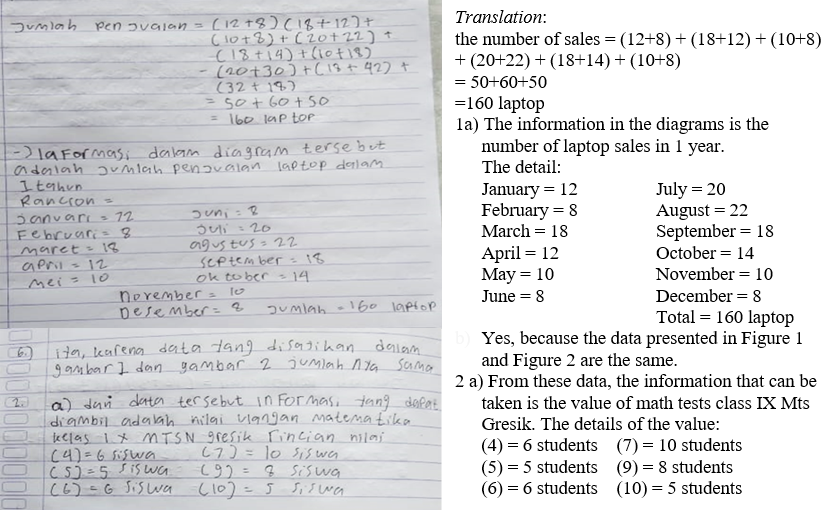 Jumlah penjualan = (12+8) (18+12)+
(10+8)+(20+22)+
(18+14)+(10+18)
- (20+30)+(18+42)+
(32+18)
= 50+60+50
= 160 laptor
-) 1a Formasi dalam diagram tersebut
adalah Jumlah penjualan laptop dalam
I tahun
Rancion =
Januari = 12
Februari = 8
maret = 18
april = 12
mei = 10
Juni = 8
Juli = 20
agustus = 22
September = 18
oktober = 14
november = 10
Desember = 8
Jumlah = 160 laptop
6.) iya, karena data yang disajikan dalam
gambar I dan gambar 2 jumlah nya sama
2. a) dari data tersebut informasi yang dapat
diambil adalah nilai ulangan matematika
kelas IX MTSN gresik rincian nilai
(4)=6 siswa
(5)=5 siswa
(6)=6 siswa
(7)= 10 siswa
(9)= 8 siswa
(10)= 5 siswa
Translation:
the number of sales = (12+8) + (18+12) + (10+8)
+ (20+22) + (18+14) + (10+8)
= 50+60+50
=160 laptop
1a) The information in the diagrams is the
number of laptop sales in 1 year.
The detail:
January = 12
February = 8
March = 18
April = 12
May = 10
June = 8
July = 20
August = 22
September = 18
October = 14
November = 10
December = 8
Total = 160 laptop
b) Yes, because the data presented in Figure 1
and Figure 2 are the same.
2 a) From these data, the information that can be
taken is the value of math tests class IX Mts
Gresik. The details of the value:
(4) = 6 students (7) = 10 students
(5) = 5 students (9) = 8 students
(6) = 6 students (10) = 5 students